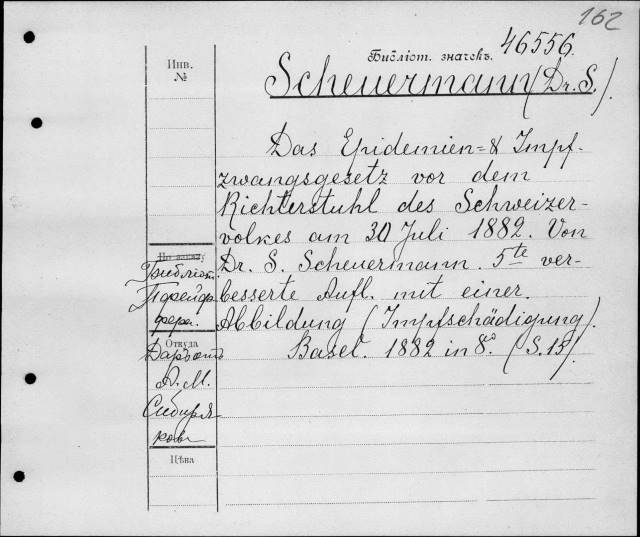 162
Библіот. значекъ. 46556.
Инв.
№
Scheuermann (Dr. S.).
Das Epidemien-& Impf-
zwangsgesetz vor dem
Richterstuhl des Schweizer-
volkes am 30 Juli 1882. Von
Dr. S. Scheuermann. 5te ver-
besserte Aufl. mit einer
Abbildung (Impfschädigung).
Basel. 1882 in 8°. (S. 15)
Библіот.
Пфейф-
фера.
Откуда
Даръ отъ
А. М.
Сибиря
кова
Цѣна